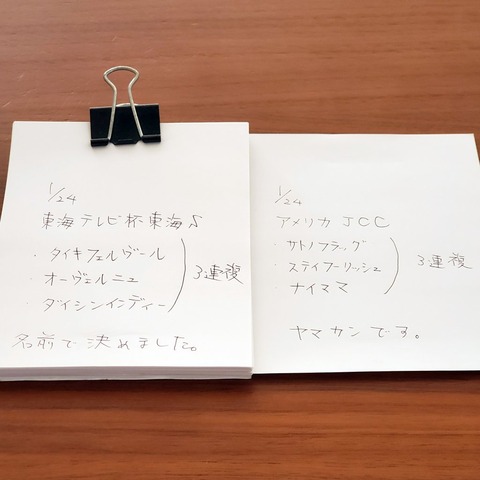 1/24
東海テレビ杯東海S
・タイキフェルヴール
・オーヴェルニュ
・ダイシンインディー
3連複
名前で決めました。
1/24
アメリカJCC
・サトノフラッグ
・ステイフーリッシュ
・ナイママ
3連複
ヤマカンです。